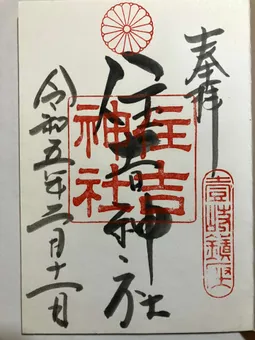 奉拝
壹岐鎮座
住吉神社
住吉
神社
令和五年三月十一日